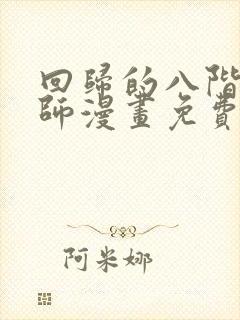 回歸的八階
師漫畫免費
阿米娜